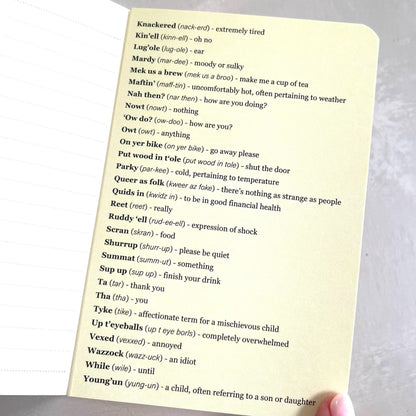 Knackered (nack-erd) - extremely tired
Kin'ell (kinn-ell) - oh no
Lug'ole (lug-ole) - ear
Mardy (mar-dee) - moody or sulky
Mek us a brew (mek us a broo) - make me a cup of tea
Maftin' (maff-tin) - uncomfortably hot, often pertaining to weather
Nah then? (nar then) - how are you doing?
Nowt (nowt) - nothing
'Ow do? (ow-doo) - how are you?
Owt (owt) - anything
On yer bike (on yer bike) - go away please
Put wood in t'ole (put wood in tole) - shut the door
Parky (par-kee) - cold, pertaining to temperature
Queer as folk (kweer az foke) - there's nothing as strange as people
Quids in (kwidz in) - to be in good financial health
Reet (reet) - really
Ruddy 'ell (rud-ee-ell) - expression of shock
Scran (skran) - food
Shurrup (shurr-up) - please be quiet
Summat (summ-ut) - something
Sup up (sup up) - finish your drink
Ta (tar) - thank you
Tha (tha) - you
Tyke (tike) - affectionate term for a mischievous child
Up t'eyeballs (up t eye borls) - completely overwhelmed
Vexed (vexxed) - annoyed
Wazzock (wazz-uck) - an idiot
While (wile) - until
Young'un (yung-un) - a child, often referring to a son or daughter